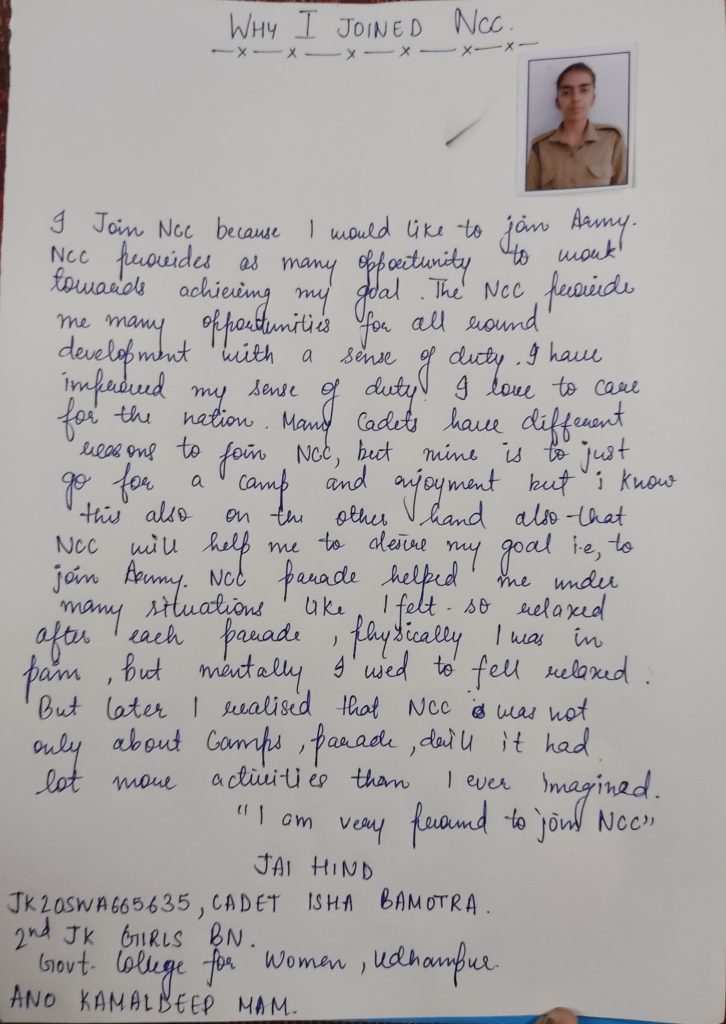 WHY I JOINED NCC.
I Join NCC because I would like to join Army.
NCC provides as many opportunity to work
towards achieving my goal. The NCC provide
me many opportunities for all round
development with a sense of duty. I have
improved my sense of duty I love to care
for the nation. Many Cadets have different
reasons to join NCC, but mine is to just
go for a camp and anjoyment but i know
this also on the other hand also that
NCC will help me to desire my goal i.e, to
join Army. NCC parade helped me under
many situations like I felt so relaxed
after each parade, physically I was in
pain, but mentally I used to fell relaxed.
But later I realised that NCC was not
only about Camps, parade, drill it had
lot more activities than I ever imagined.
"I am very proud to join NCC"
JAI HIND
JK20SWA665635, CADET ISHA BAMOTRA.
2nd JK GIRLS BN.
Govt. College for Women, Udhampur.
ANO KAMALDEEP MAM.